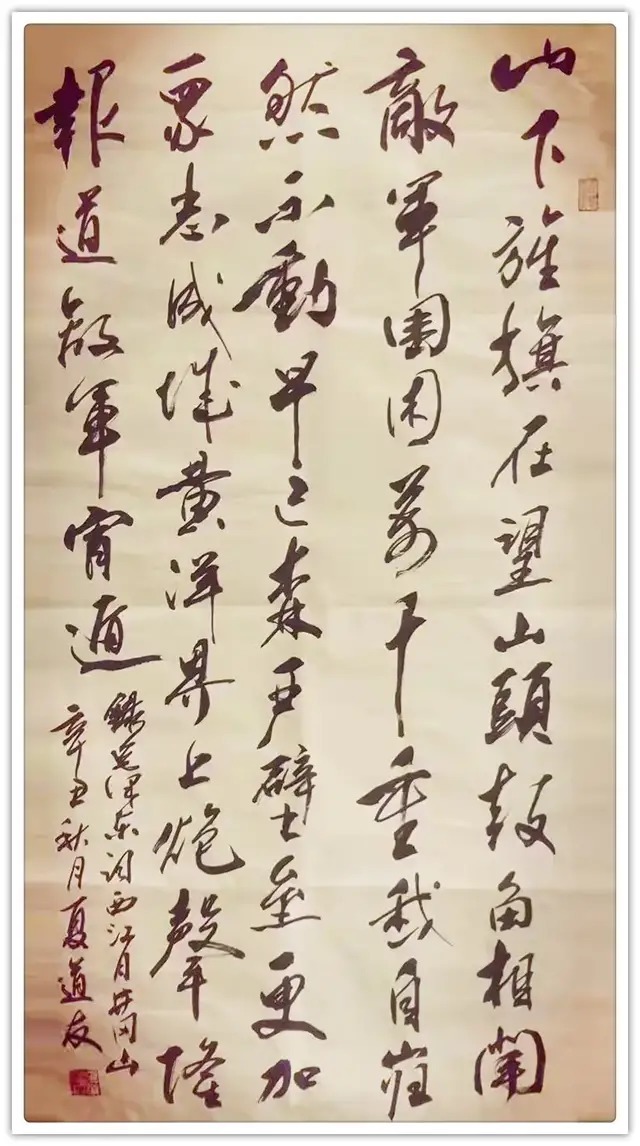 山下旌旗在望山頭鼓角相聞
敵軍圍困萬千重我自岿
然不動早已森严壁壘更加
眾志成城黄洋界上炮聲隆
報道敵軍宵遁
錄毛泽东词西江月井冈山
辛丑秋月夏道友